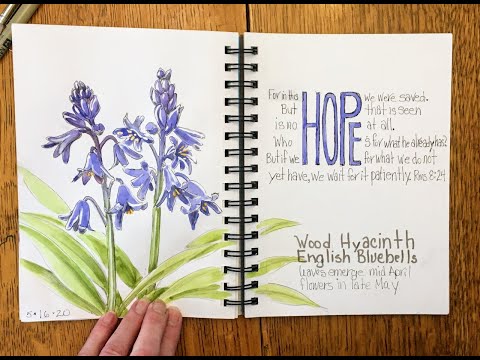 For in this HOPE we were saved.
But that is seen
is no at all.
Who s for what he already has?
But if we for what we do not
yet have, we wait for it patiently. Rms. 8:24
Wood Hyacinth
English Bluebells
leaves emerge mid April
flowers in late May
5•16•20